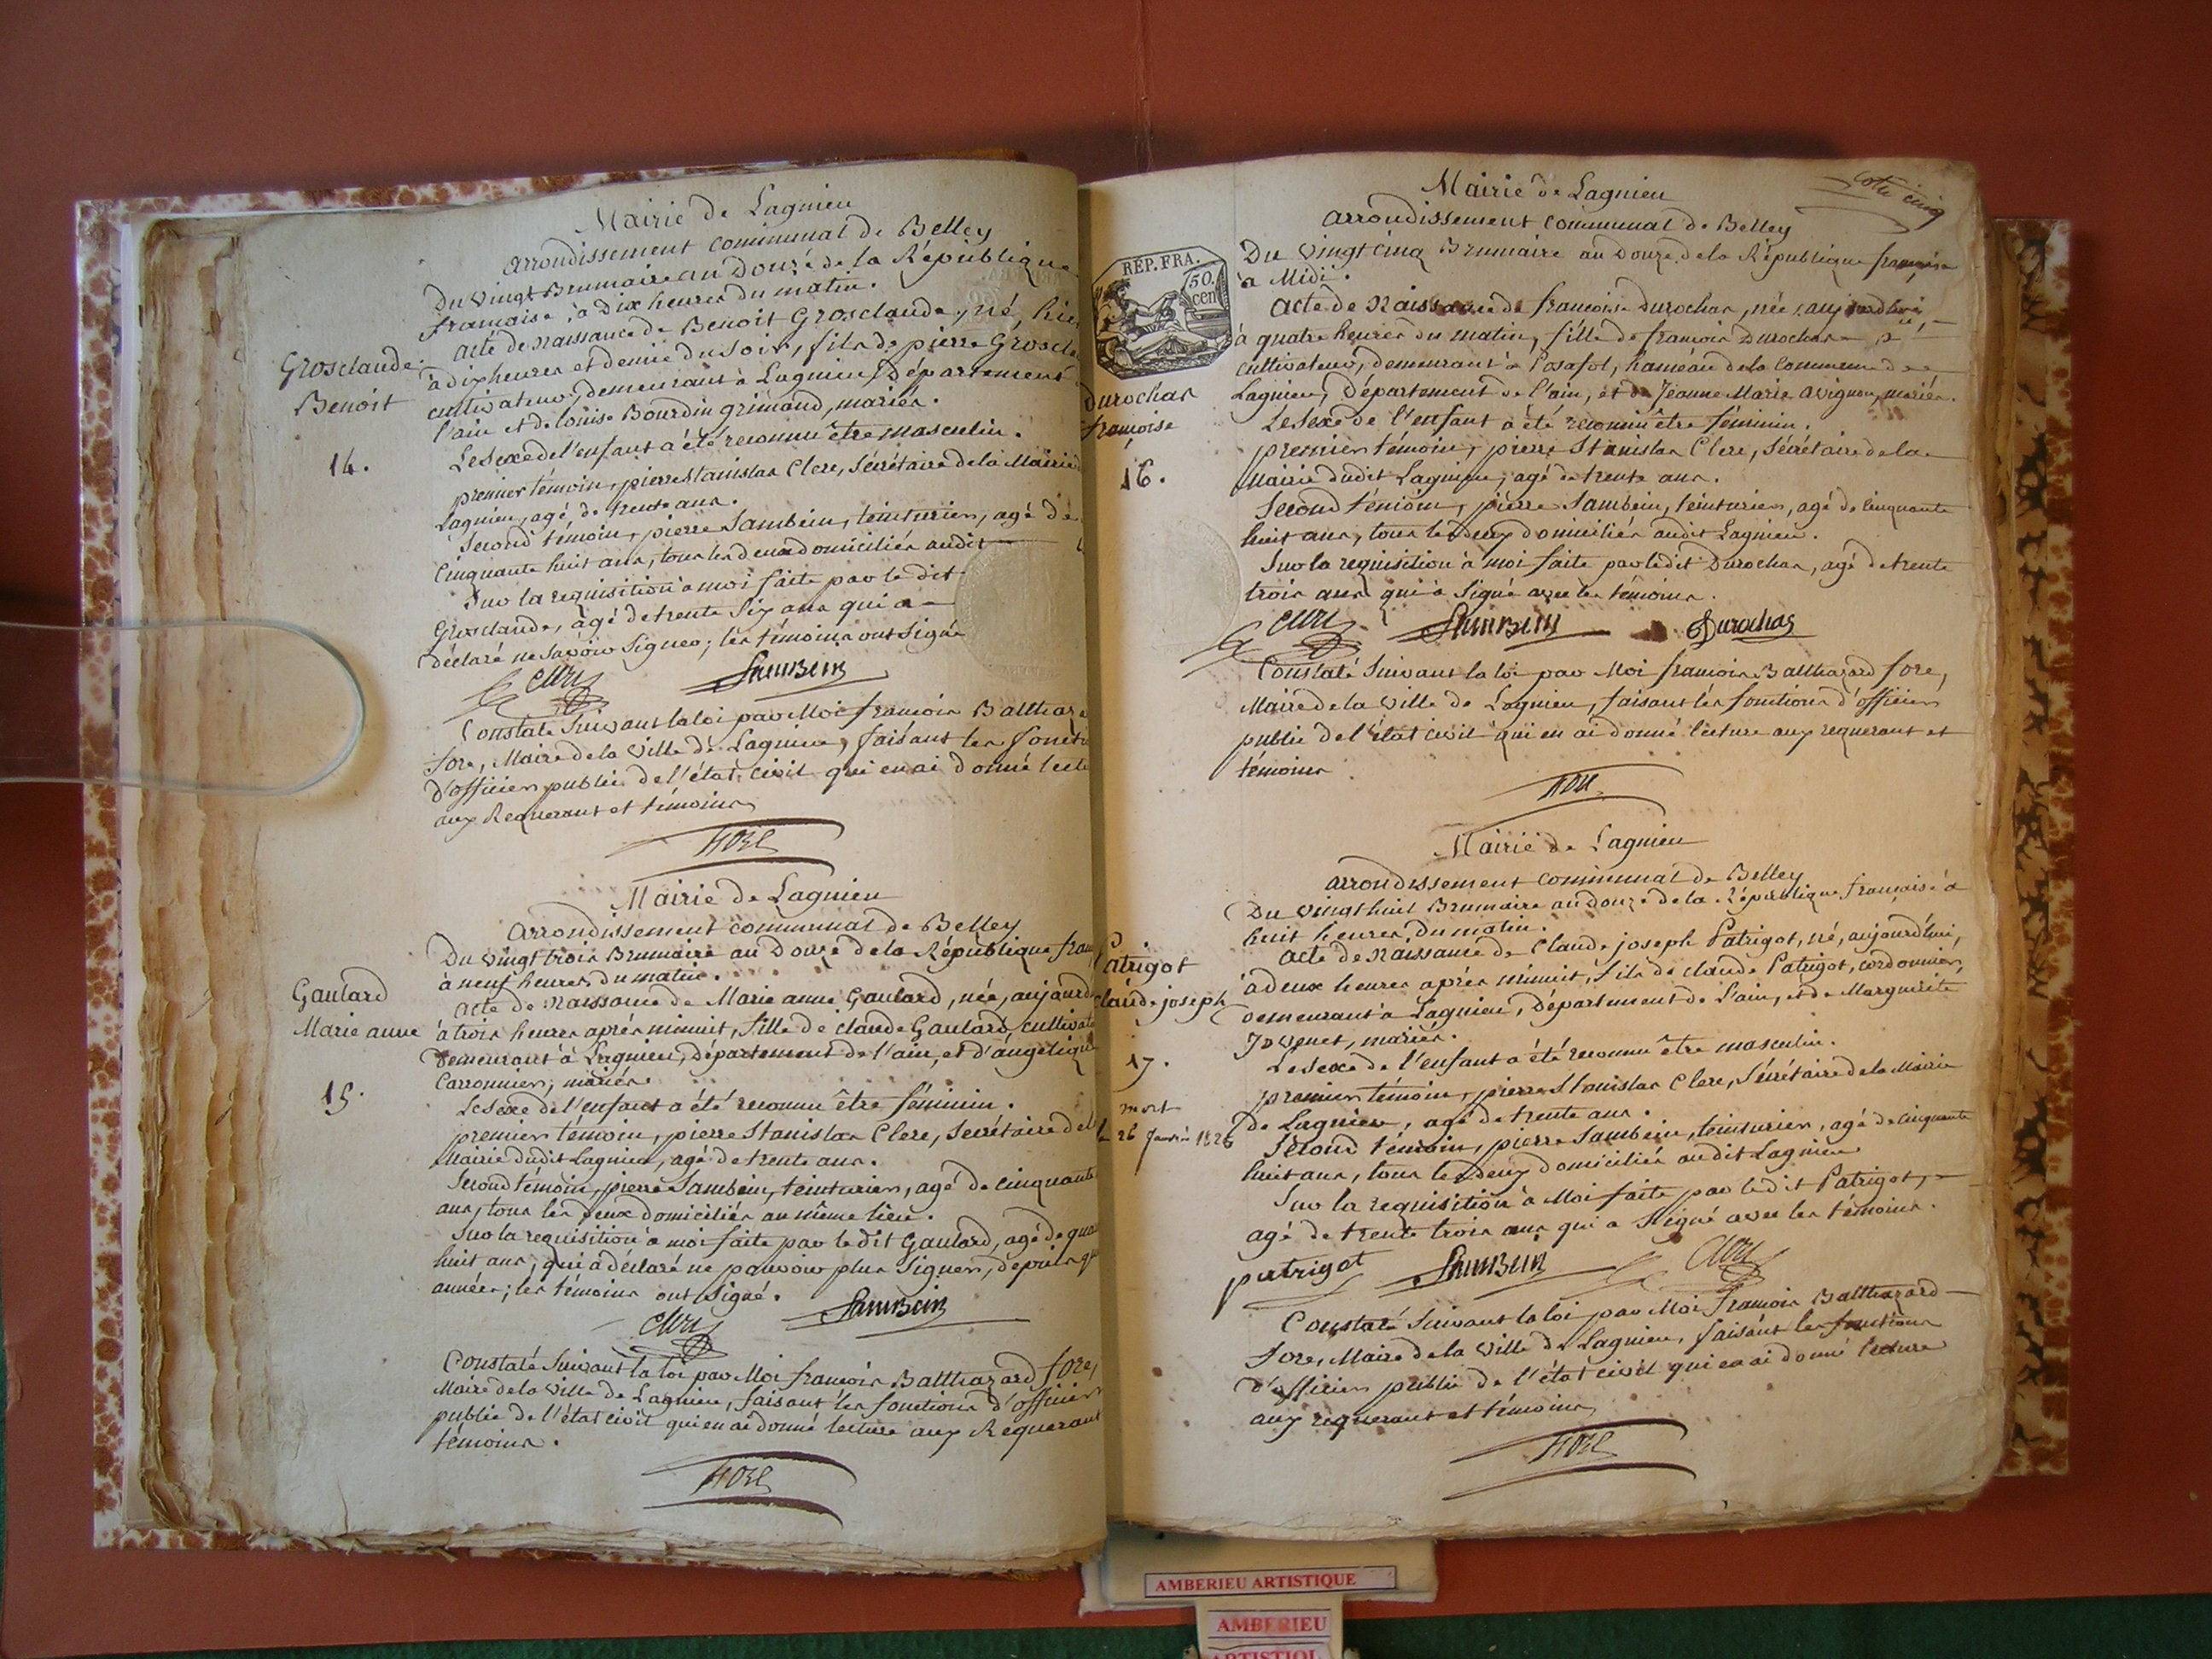 Mairie de Lagnieu
arrondissement communal de Belley
Du vingt Brumaire an Douze de la République
française, à dix heures du matin.
Acte de naissance de Benoit Grosclaude, né, hier
à dix heures et demie du soir, fils de pierre Groscl
cultivateur, demeurant à Lagnieu, Département
l'ain et de louise Bourdin grimaud, mariés.
Le sexe de l'enfant a été reconnu être masculin.
premier témoin, pierre Stanislas Clerc, Sécrétaire de la Mairie
Lagnieu, agé de trente ans.
Second témoin, pierre Sambein, teinturier, agé de
Cinquante huit ans, tous les deux domiciliés audit
Sur la requisition à moi faite par le dit
Grosclaude, agé de trente six ans qui a
déclaré ne savoir signer; les témoins ont signé
Clerc SamBein
Constaté suivant la loi par Moi françois Balthaza
fore, Maire de la ville de Lagnieu, faisant les foncti
d'officier public de l'état civil qui en ai donné lect
aux Requerant et témoins
fore
Grosclaude
Benoit
14.
Mairie de Lagnieu
arrondissement communal de Belley
Du vingt trois Brumaire an Douze de la République fran
à neuf heures du matin.
Acte de naissance de Marie anne Gaulard, née, aujourd
à trois heures après minuit, fille de claude Gaulard, cultivat
demeurant à Lagnieu, département de l'ain, et d'angélique
Carronnier, mariés.
Le sexe de l'enfant a été reconnu être féminin.
premier témoin, pierre Stanislas Clerc, Secrétaire de l
Mairie dudit Lagnieu, agé de trente ans.
Second témoin, pierre Sambein, teinturier, agé de cinquante
ans, tous les deux domiciliés au même lieu.
Sur la requisition à moi faite par le dit Gaulard, agé de qua
huit ans, qui a déclaré ne pouvoir plus signer, depuis
années; les témoins ont signé.
Clerc SamBein
Constaté suivant la loi par Moi françois Balthazard fore,
Maire de la ville de Lagnieu, faisant les fonctions d'officier
public de l'état civil qui en ai donné lecture aux Requerant
témoins.
fore
Gaulard
Marie anne
15.
Cote cinq
Mairie de Lagnieu
arrondissement communal de Belley
Du vingt cinq Brumaire an Douze de la République française
à Midi.
REP. FRA.
50.
cen
Acte de Naissance de françoise Durochas, née, aujourdhui
à quatre heures du matin, fille de françois Durochas
cultivateur, demeurant à Posafol, hameau de la Commune de
Lagnieu, Département de l'ain, et de Jeanne Marie avignon, mariés.
Le Sexe de l'enfant a été reconnu être féminin.
premier témoin, pierre Stanislas Clerc, Sécrétaire de la
Mairie dudit Lagnieu, agé de trente ans.
Second témoin, pierre Sambein, teinturier, agé de Cinquante
huit ans, tous les deux domiciliés audit Lagnieu.
Sur la requisition à moi faite par ledit Durochas, agé de trente
trois ans qui a signé avec les témoins.
Clerc SamBein Durochas
Constaté suivant la loi par Moi françois Balthazard fore,
Maire de la ville de Lagnieu, faisant les fonctions d'officier
public de l'état civil qui en ai donné lecture aux requerant et
témoins
fore
Durochas
françoise
16.
Mairie de Lagnieu
arrondissement communal de Belley
Du vingt huit Brumaire an douze de la République française à
huit heures du matin.
Acte de naissance de Claude joseph Patrigot, né, aujourd'hui,
à deux heures après minuit, fils de claude Patrigot, cordonnier,
demeurant à Lagnieu, Département de l'ain, et de Marguerite
Jovenet, mariés.
Le Sexe de l'enfant a été reconnu être masculin.
premier témoin, pierre Stanislas Clerc, Sécrétaire de la Mairie
de Lagnieu, agé de trente ans.
Second témoin, pierre Sambein, teinturier, agé de cinquante
huit ans, tous les deux domiciliés audit Lagnieu
Sur la requisition à Moi faite par ledit Patrigot,
agé de trente trois ans qui a signé avec les témoins.
patrigot SamBein Clerc
Constaté suivant la loi par Moi françois Balthazard
fore, Maire de la ville de Lagnieu, faisant les fonctions
d'officier public de l'état civil qui en ai donné lecture
aux requerant et témoins
fore
Patrigot
Claude joseph
17.
mort
le 26 Janvier 1826
AMBERIEU ARTISTIQUE
AMBERIEU
ARTISTIQU